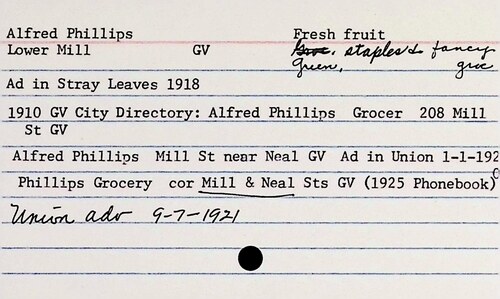 Alfred Phillips Fresh fruit
Lower Mill GV Groc. staples & fancy
Green. groc
Ad in Stray Leaves 1918
1910 GV City Directory: Alfred Phillips Grocer 208 Mill
St GV
Alfred Phillips Mill St near Neal GV Ad in Union 1-1-192
Phillips Grocery cor Mill & Neal Sts GV (1925 Phonebook)
Union adv 9-7-1921